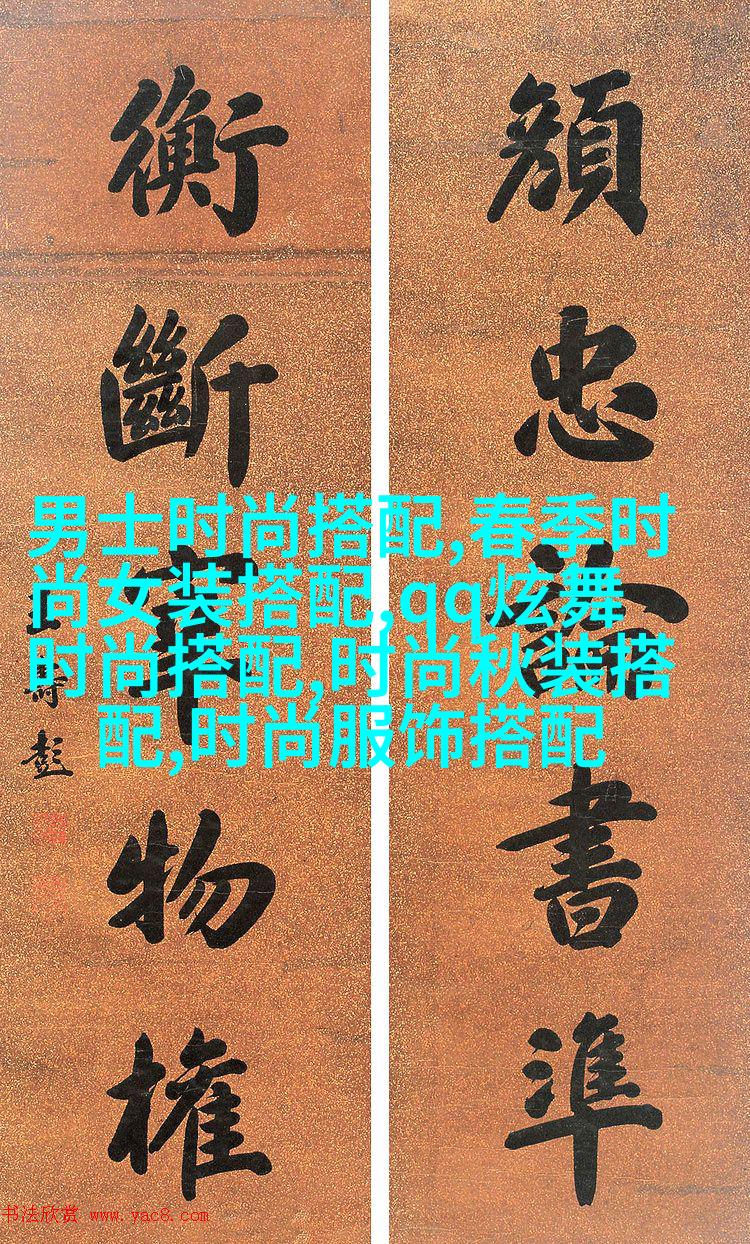 顏忠論書準
衡斷物權
彭
男士时尚搭配,春季时
尚女装搭配,qq炫舞
时尚搭配,时尚秋装搭
配,时尚服饰搭配
书法欣赏 www.yac8.com